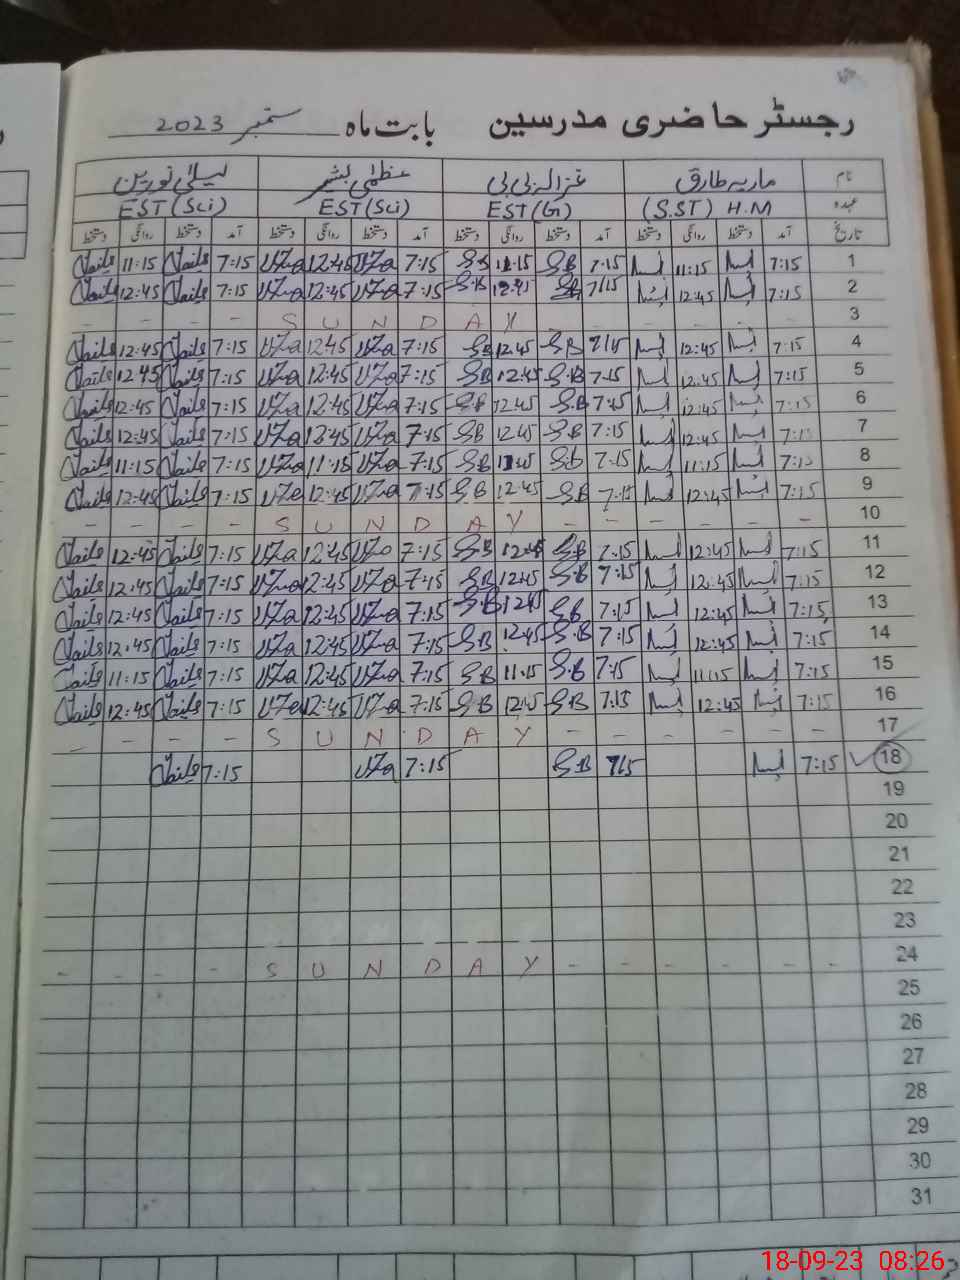 رجسٹر حاضری مدرسین بابت ماہ ستمبر 2023
نام ماریہ طارق غزالہ بی بی عظمیٰ بشیر لیلیٰ نورین
عہدہ (S.ST) H.M EST(G) EST(Sci) EST(Sci)
تاریخ آمد دستخط روانگی دستخط آمد دستخط روانگی دستخط آمد دستخط روانگی دستخط آمد دستخط روانگی دستخط
1 7:15 11:15 7:15 SB 11:15 SB 7:15 Uza 12:45 Uza 7:15 11:15
2 7:15 12:45 7:15 SB 12:45 S.B 7:15 Uza 12:45 Uza 7:15 12:45
3 - - - - - - S U N D A Y - - - -
4 7:15 12:45 7:15 SB 12:45 SB 7:15 Uza 12:45 Uza 7:15 12:45
5 7:15 12:45 7:15 S.B 12:45 SB 7:15 Uza 12:45 Uza 7:15 12:45
6 7:15 12:45 7:15 S.B 12:45 SB 7:15 Uza 12:45 Uza 7:15 12:45
7 7:15 12:45 7:15 SB 12:45 SB 7:15 Uza 12:45 Uza 7:15 12:45
8 7:15 11:15 7:15 S.b 11:15 S.B 7:15 Uza 11:15 Uza 7:15 11:15
9 7:15 12:45 7:15 S.B 12:45 SB 7:15 Uza 12:45 Uza 7:15 12:45
10 - - - - - - S U N D A Y - - - -
11 7:15 12:45 7:15 SB 12:45 S.B 7:15 Uza 12:45 Uza 7:15 12:45
12 7:15 12:45 7:15 S.B 12:45 SB 7:15 Uza 12:45 Uza 7:15 12:45
13 7:15 12:45 7:15 SB 12:45 S.B 7:15 Uza 12:45 Uza 7:15 12:45
14 7:15 12:45 7:15 S.B 12:45 S.B 7:15 Uza 12:45 Uza 7:15 12:45
15 7:15 11:15 7:15 S.B 11:15 SB 7:15 Uza 12:45 Uza 7:15 11:15
16 7:15 12:45 7:15 S.B 12:45 S.B 7:15 Uza 12:45 Uza 7:15 12:45
17 - - - - - - S U N D A Y - - - -
18 7:15 7:15 S.B 7:15 Uza 7:15
19
20
21
22
23
24 - - - - - - S U N D A Y - - - -
25
26
27
28
29
30
31
18-09-23 08:26